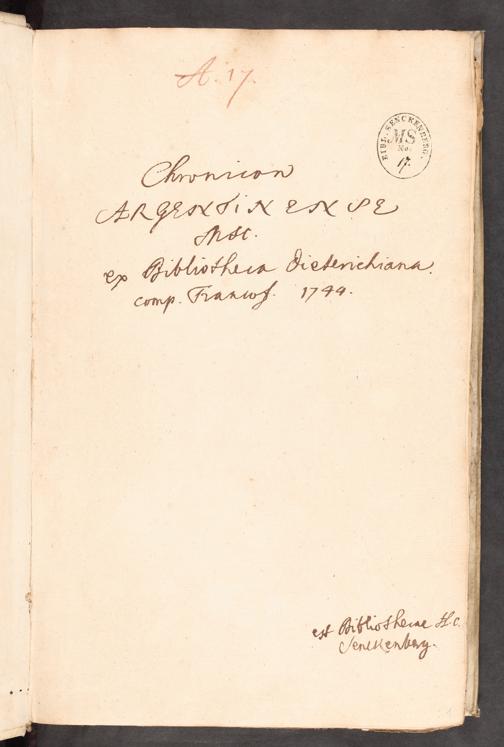 A. 17.
BIBL. SENCKENBERG.
MS
No.
17.
Chronicon
ARGENTINENSE
Mst.
ex Bibliotheca Dieterichiana.
comp. Francof. 1744.
est Bibliothecae H. C.
Senckenberg.